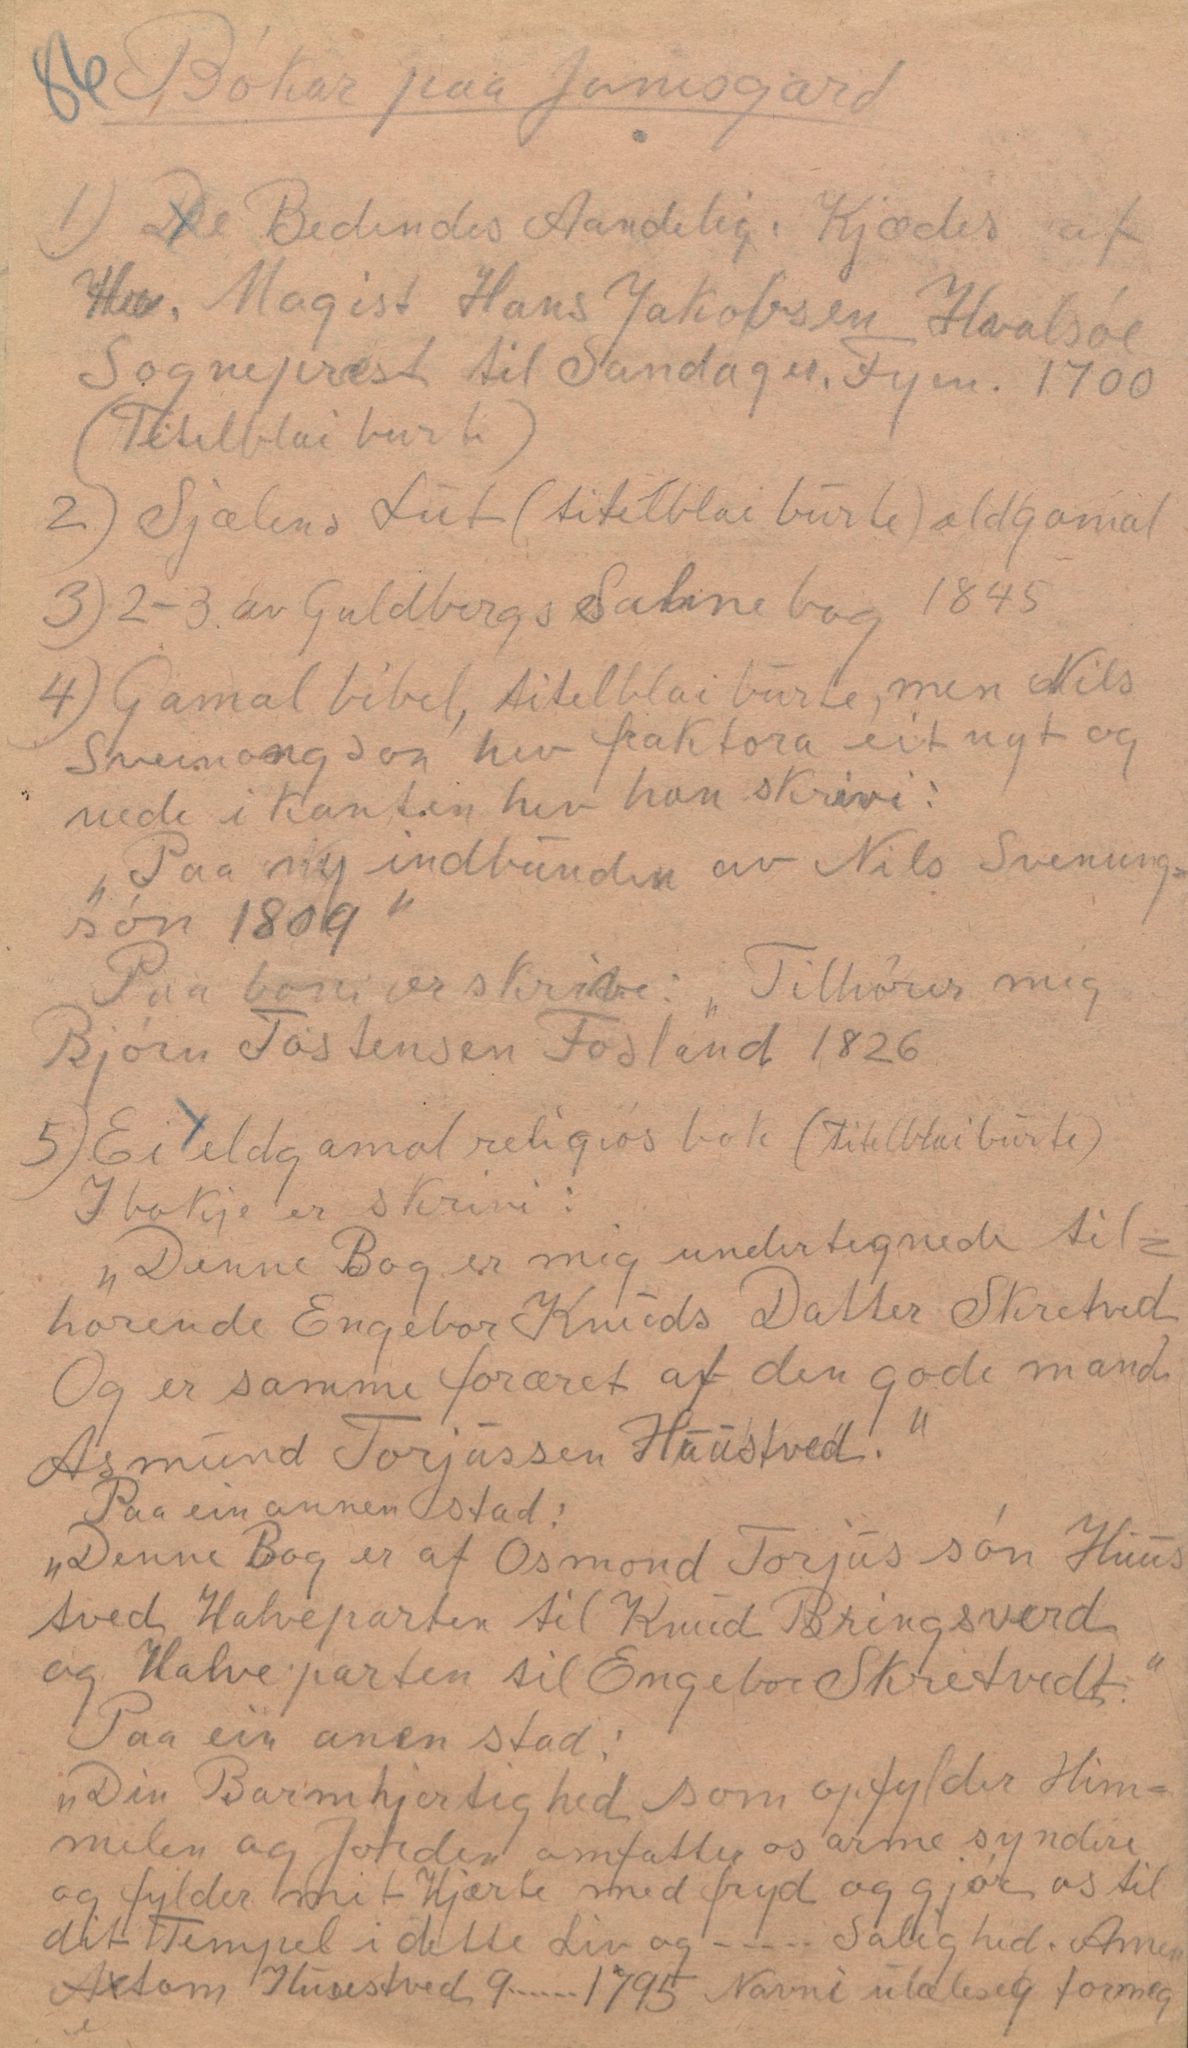 86 Bókar paa Jamsgard
1) De Bedendes Aandelig. Kjæder af
Hr. Magist Hans Jakobsen Hvalsöe
Sogneprest til Sandager. Fyen. 1700
(Titelblai burte)
2) Sjælens Lüt (titelblai bürte) eldgamal
3) 2-3 av Guldbergs Salmebog 1845
4) Gamal bibel, titelblai bürte, men Nils
Sveinongson hev fraktora eit nyt og
nede i kanten hev han skrivi:
"Paa ny indbünden av Nils Svenung=
són 1809"
Paa boni er skrive: "Tilhörer mig
Bjórn Tostensen Fosländ 1826
5) Ei eldgamal religiós bok (titelblai bürte)
I bokje er skrivi:
"Denne Bog er mig undertegnede til=
hörende Engebor Knüds Datter Skretved
Og er samme foræret af den gode mand
Asmünd Torjüssen Hüüstved."
Paa ein annen stad:
"Denne Bog er af Osmond Torjüs són Hüüs
tved Halveparten til Knüd Bringsverd
og Halveparten til Engebor Skretvedt."
Paa ein anen stad:
"Din Barmhjertighed som opfylder Him=
melen og Jorden omfatter os arme syndere
og fylder mit Hjærte med fryd og gjór os til
dit Tempel i dette Liv og ----- Salighed. Amen
Hüüestved 9......1795 Navni ülæleseg formeg